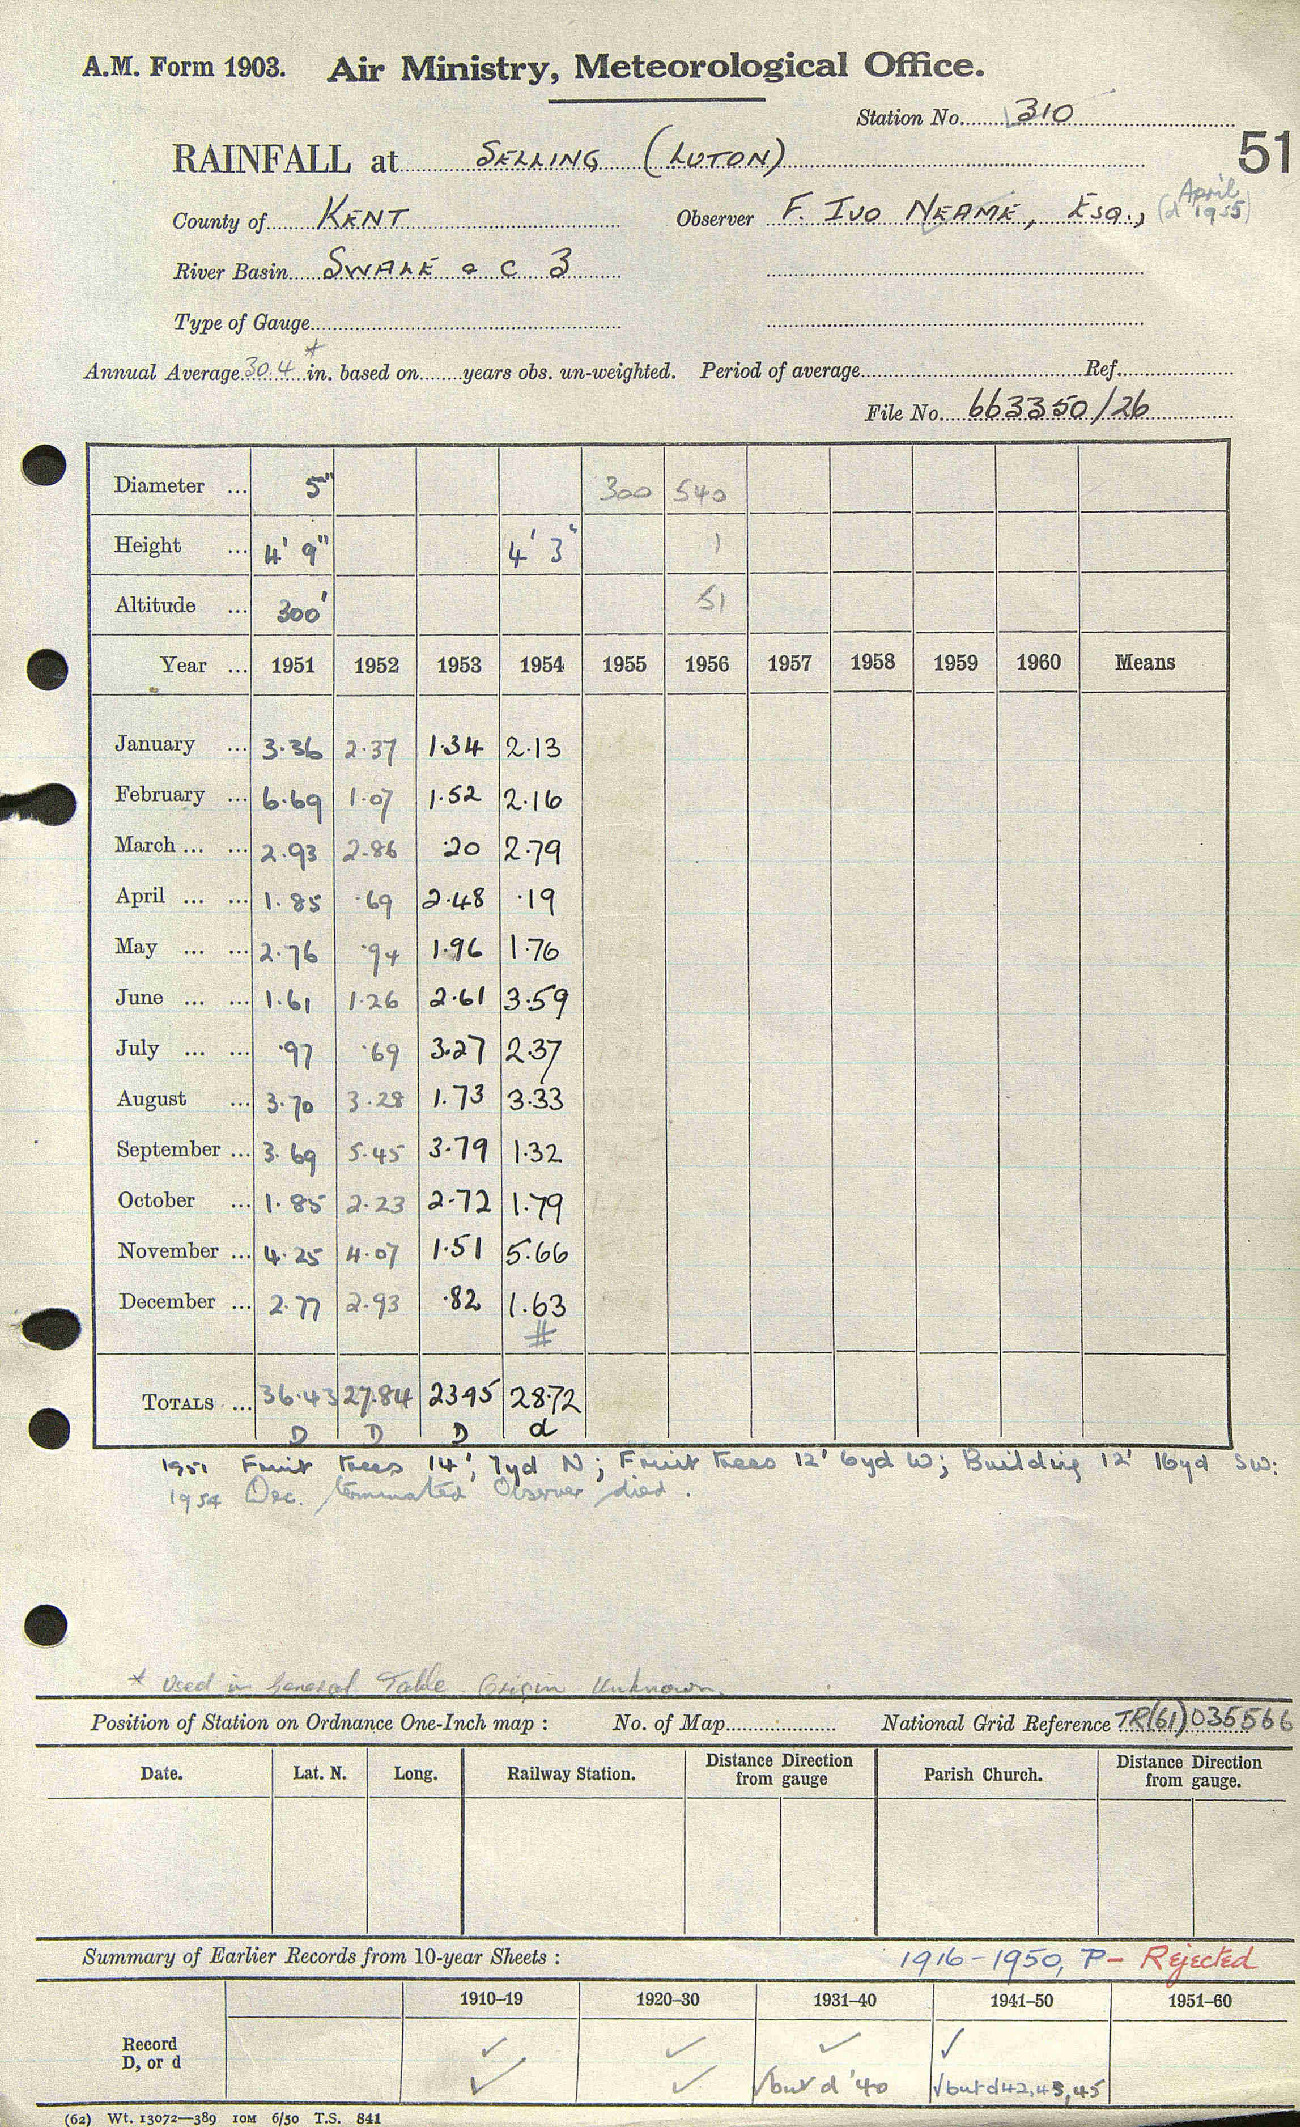 A.M. Form 1903. Air Ministry, Meteorological Office.
Station No. 310
51
RAINFALL at SELLING (LUTON)
County of KENT Observer F. IVO NEAME, Esq., (d April 1955)
River Basin SWALE a c 3
Type of Gauge
Annual Average 30.4 * in. based on years obs. un-weighted. Period of average Ref.
File No. 663350/26
Diameter ... 5" 300 540
Height ... 4' 9" 4' 3" 1
Altitude ... 300' 51
Year ... 1951 1952 1953 1954 1955 1956 1957 1958 1959 1960 Means
January ... 3.36 2.37 1.34 2.13
February ... 6.69 1.07 1.52 2.16
March ... ... 2.93 2.86 .20 2.79
April ... ... 1.85 .69 2.48 .19
May ... ... 2.76 .94 1.96 1.76
June ... ... 1.61 1.26 2.61 3.59
July ... ... .97 .69 3.27 2.37
August ... 3.70 3.28 1.73 3.33
September ... 3.69 5.45 3.79 1.32
October ... 1.85 2.23 2.72 1.79
November ... 4.25 4.07 1.51 5.66
December ... 2.77 2.93 .82 1.63
#
TOTALS ... 36.43 27.84 23.95 28.72
D D D d
1951 Fruit trees 14', 7yd N; Fruit trees 12' 6yd W; Building 12' 16yd SW:
1954 Dec. terminated Observer died.
* Used in General Table. Origin Unknown.
Position of Station on Ordnance One-Inch map : No. of Map National Grid Reference TR(61)035566
Date. Lat. N. Long. Railway Station. Distance Direction from gauge Parish Church. Distance Direction from gauge.
Summary of Earlier Records from 10-year Sheets : 1916-1950, P- Rejected
1910–19 1920–30 1931–40 1941–50 1951–60
Record ✓ ✓ ✓ ✓
D, or d ✓ ✓ ✓but d '40 ✓but d 42,43,45
(62) Wt. 13072—389 10M 6/50 T.S. 841